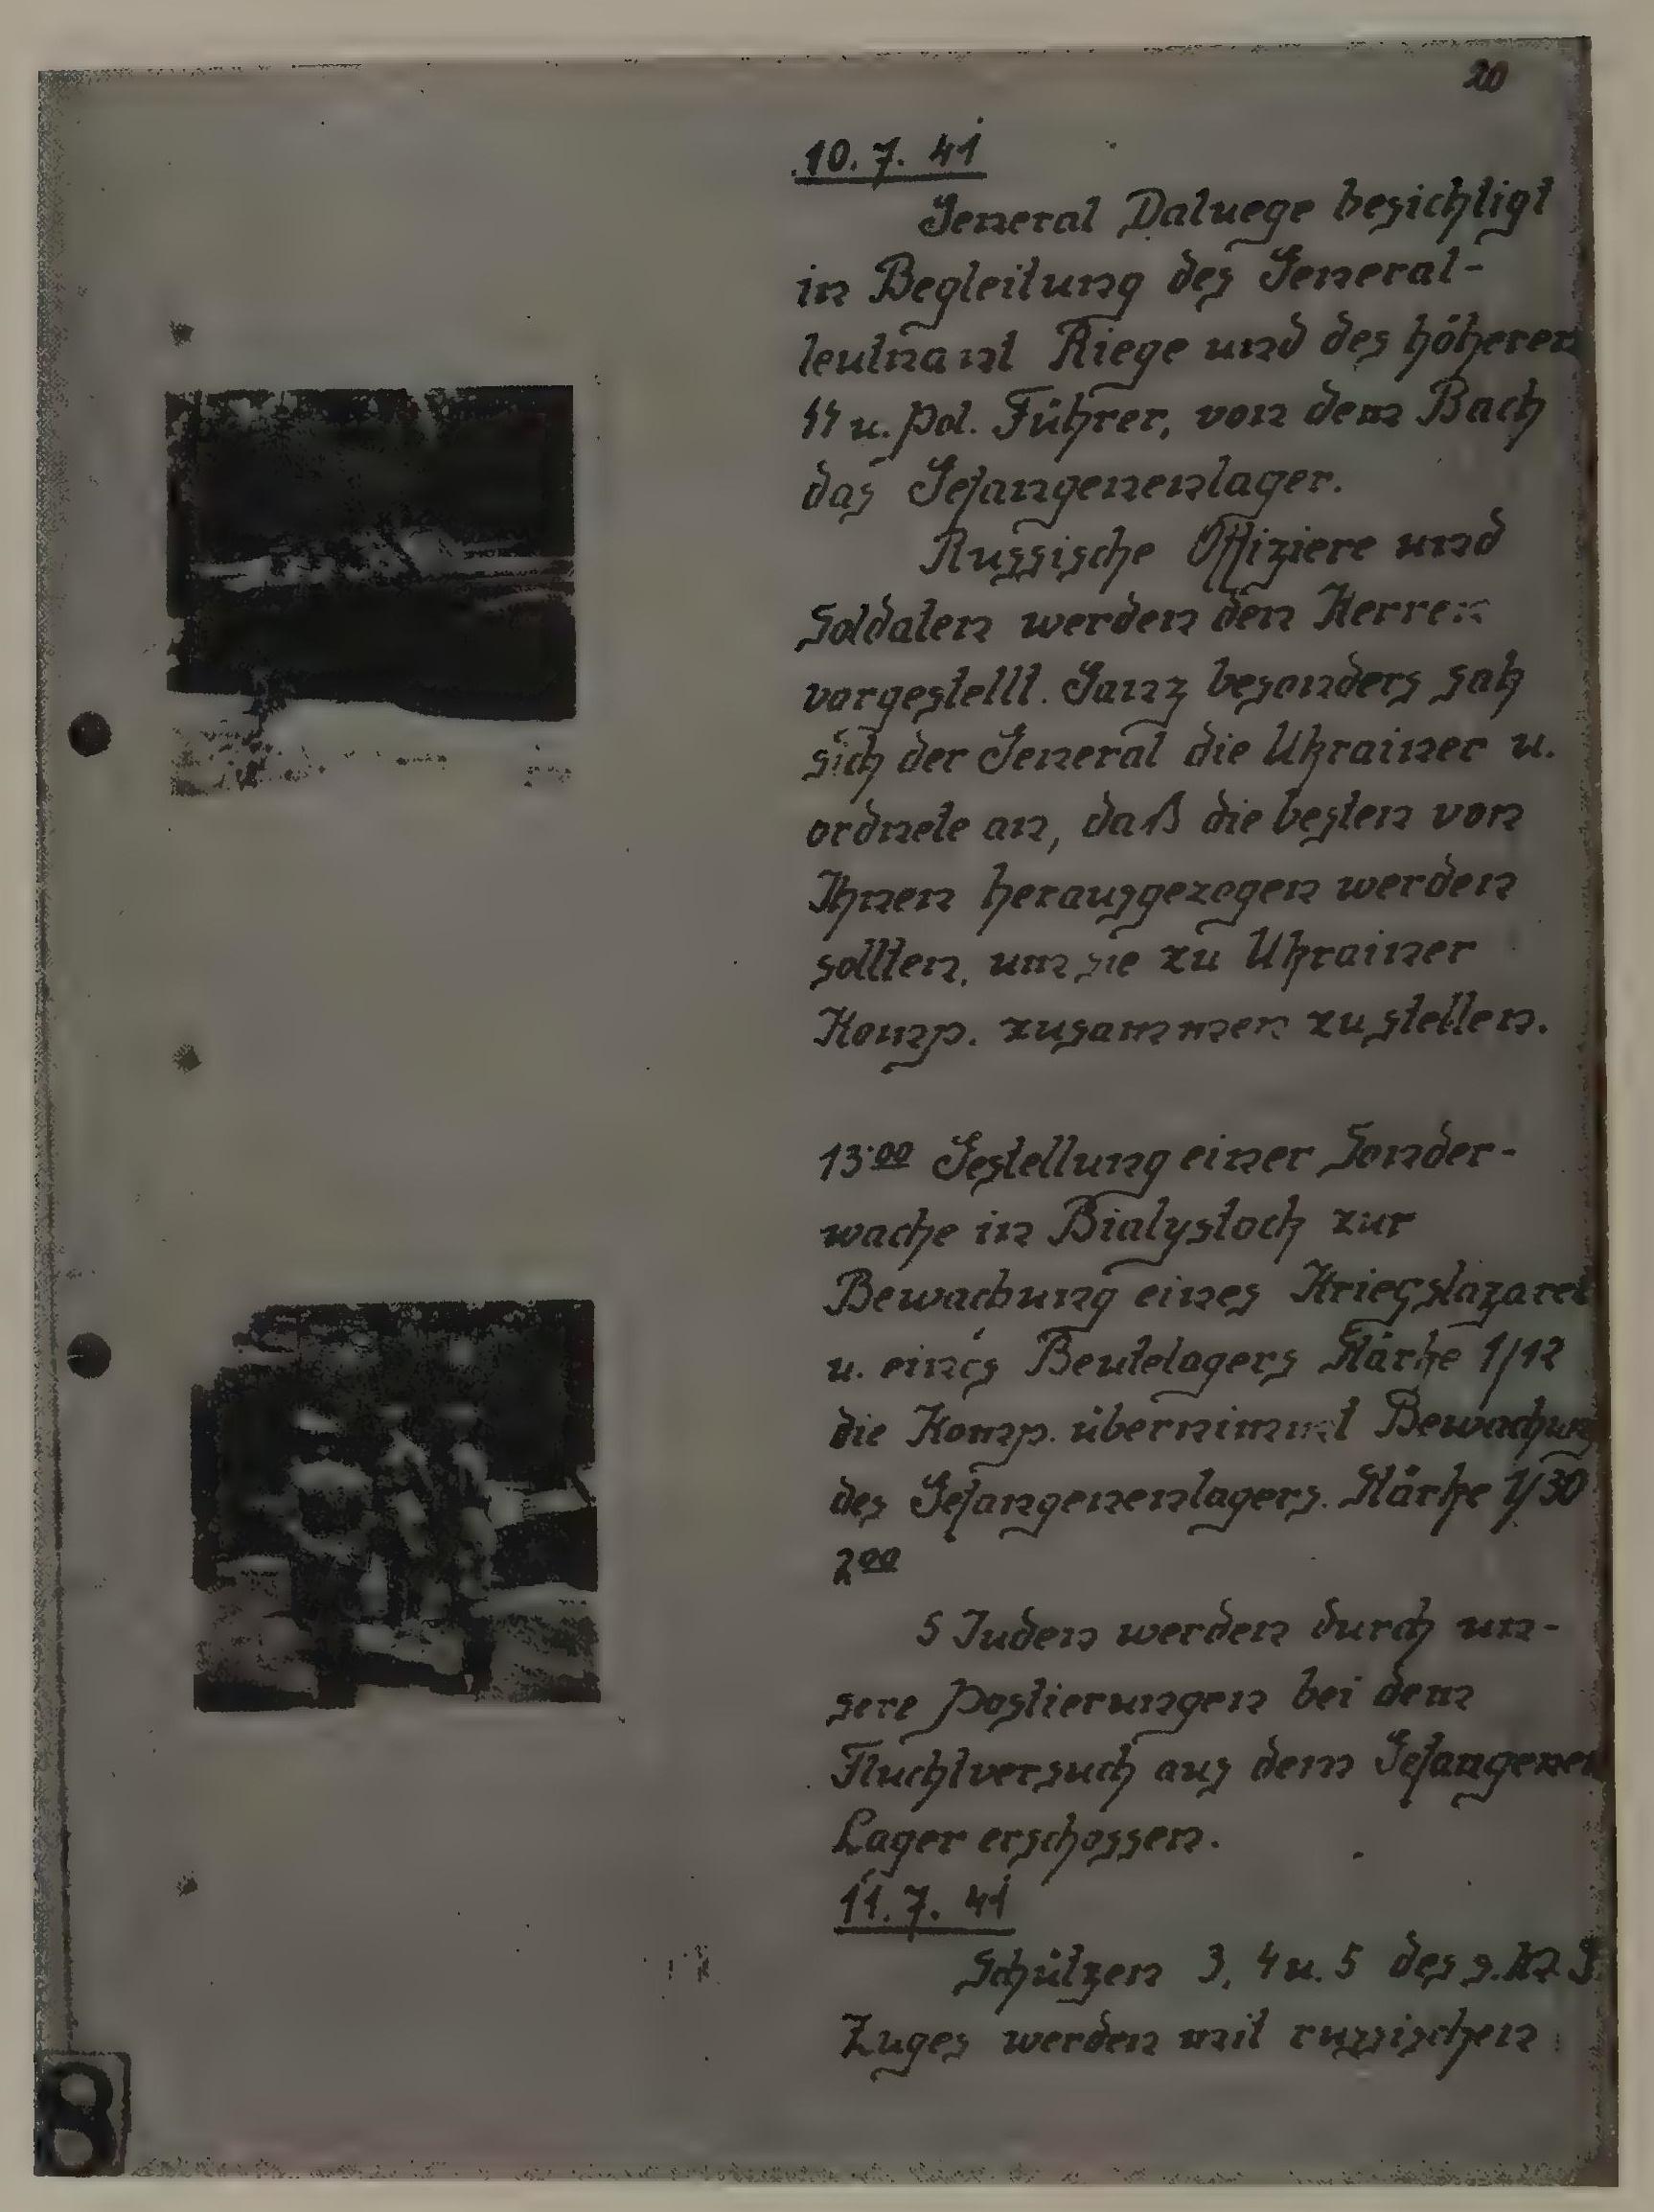 20
10.7.41
General Daluege besichtigt
in Begleitung des General-
leutnant Riege und des höheren
SS u. Pol. Führer, von dem Bach
das Gefangenenlager.
Russische Offiziere und
Soldaten werden den Herren
vorgestellt. Ganz besonders sah
sich der General die Ukrainer u.
ordnete an, daß die besten von
Ihnen herausgezogen werden
sollten, um sie zu Ukrainer
Komp. zusammen zu stellen.
13.00 Gestellung einer Sonder-
wache in Bialystock zur
Bewachung eines Kriegslazaret
u. eines Beutelagers Stärke 1/12
die Komp. übernimmt Bewachung
des Gefangenenlagers. Stärke 1/30
2.00
5 Juden werden durch un-
sere Postierungen bei dem
Fluchtversuch aus dem Gefangenen
Lager erschossen.
11.7.41
Schützen 3, 4 u. 5 des s.
Zuges werden mit russischen
8